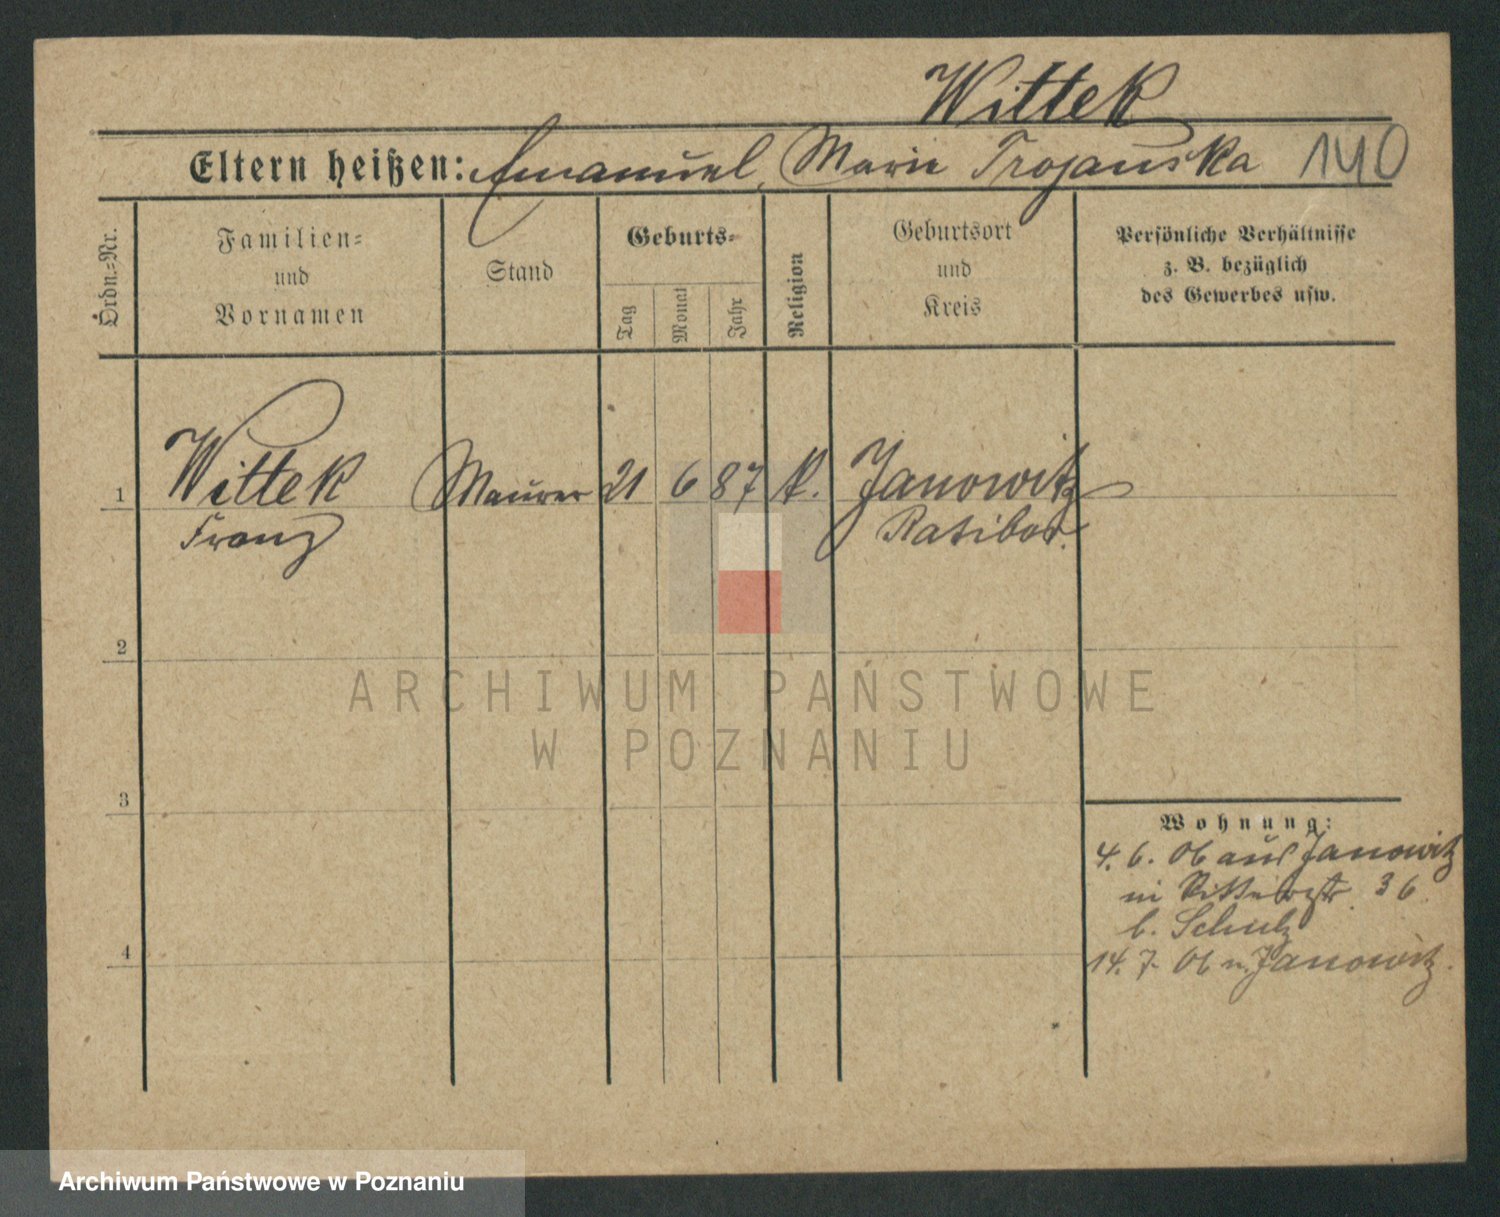 Wittek
Eltern heißen: Emanuel, Marie Trojanska 140
Ordn.-Nr.
Familien-
und
Vornamen
Stand
Geburts-
Tag
Monat
Jahr
Religion
Geburtsort
und
Kreis
Persönliche Verhältnisse
z. B. bezüglich
des Gewerbes usw.
1 Wittek Maurer 21 6 87 k. Janowitz
Franz Ratibor.
2
3
4
Wohnung:
4. 6. 06 aus Janowitz
in Ritterstr. 36
b. Schulz
14. 7. 06 n. Janowitz.
ARCHIWUM PAŃSTWOWE
W POZNANIU
Archiwum Państwowe w Poznaniu